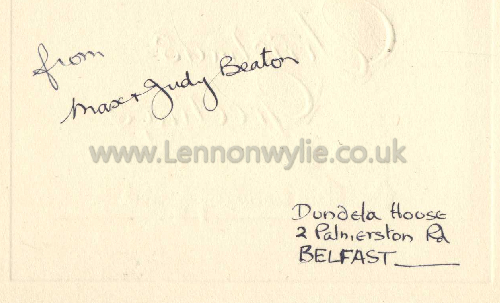 from
Max + Judy Beaton
www.Lennonwylie.co.uk
Dundela House
2 Palmerston Rd
BELFAST